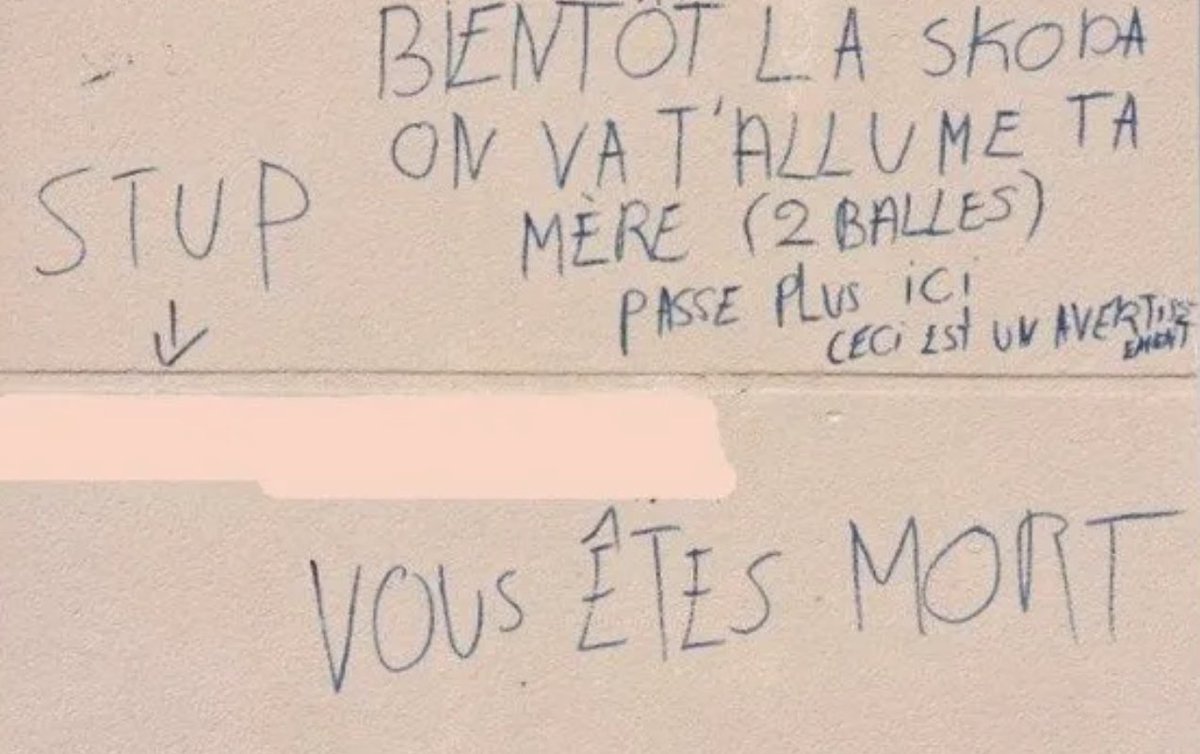 BIENTÔT LA SKODA
ON VA T'ALLUME TA
MÈRE (2 BALLES)
PASSE PLUS ICI
CECI EST UN AVERTISS
EMENT
STUP
↓
VOUS ÊTES MORT